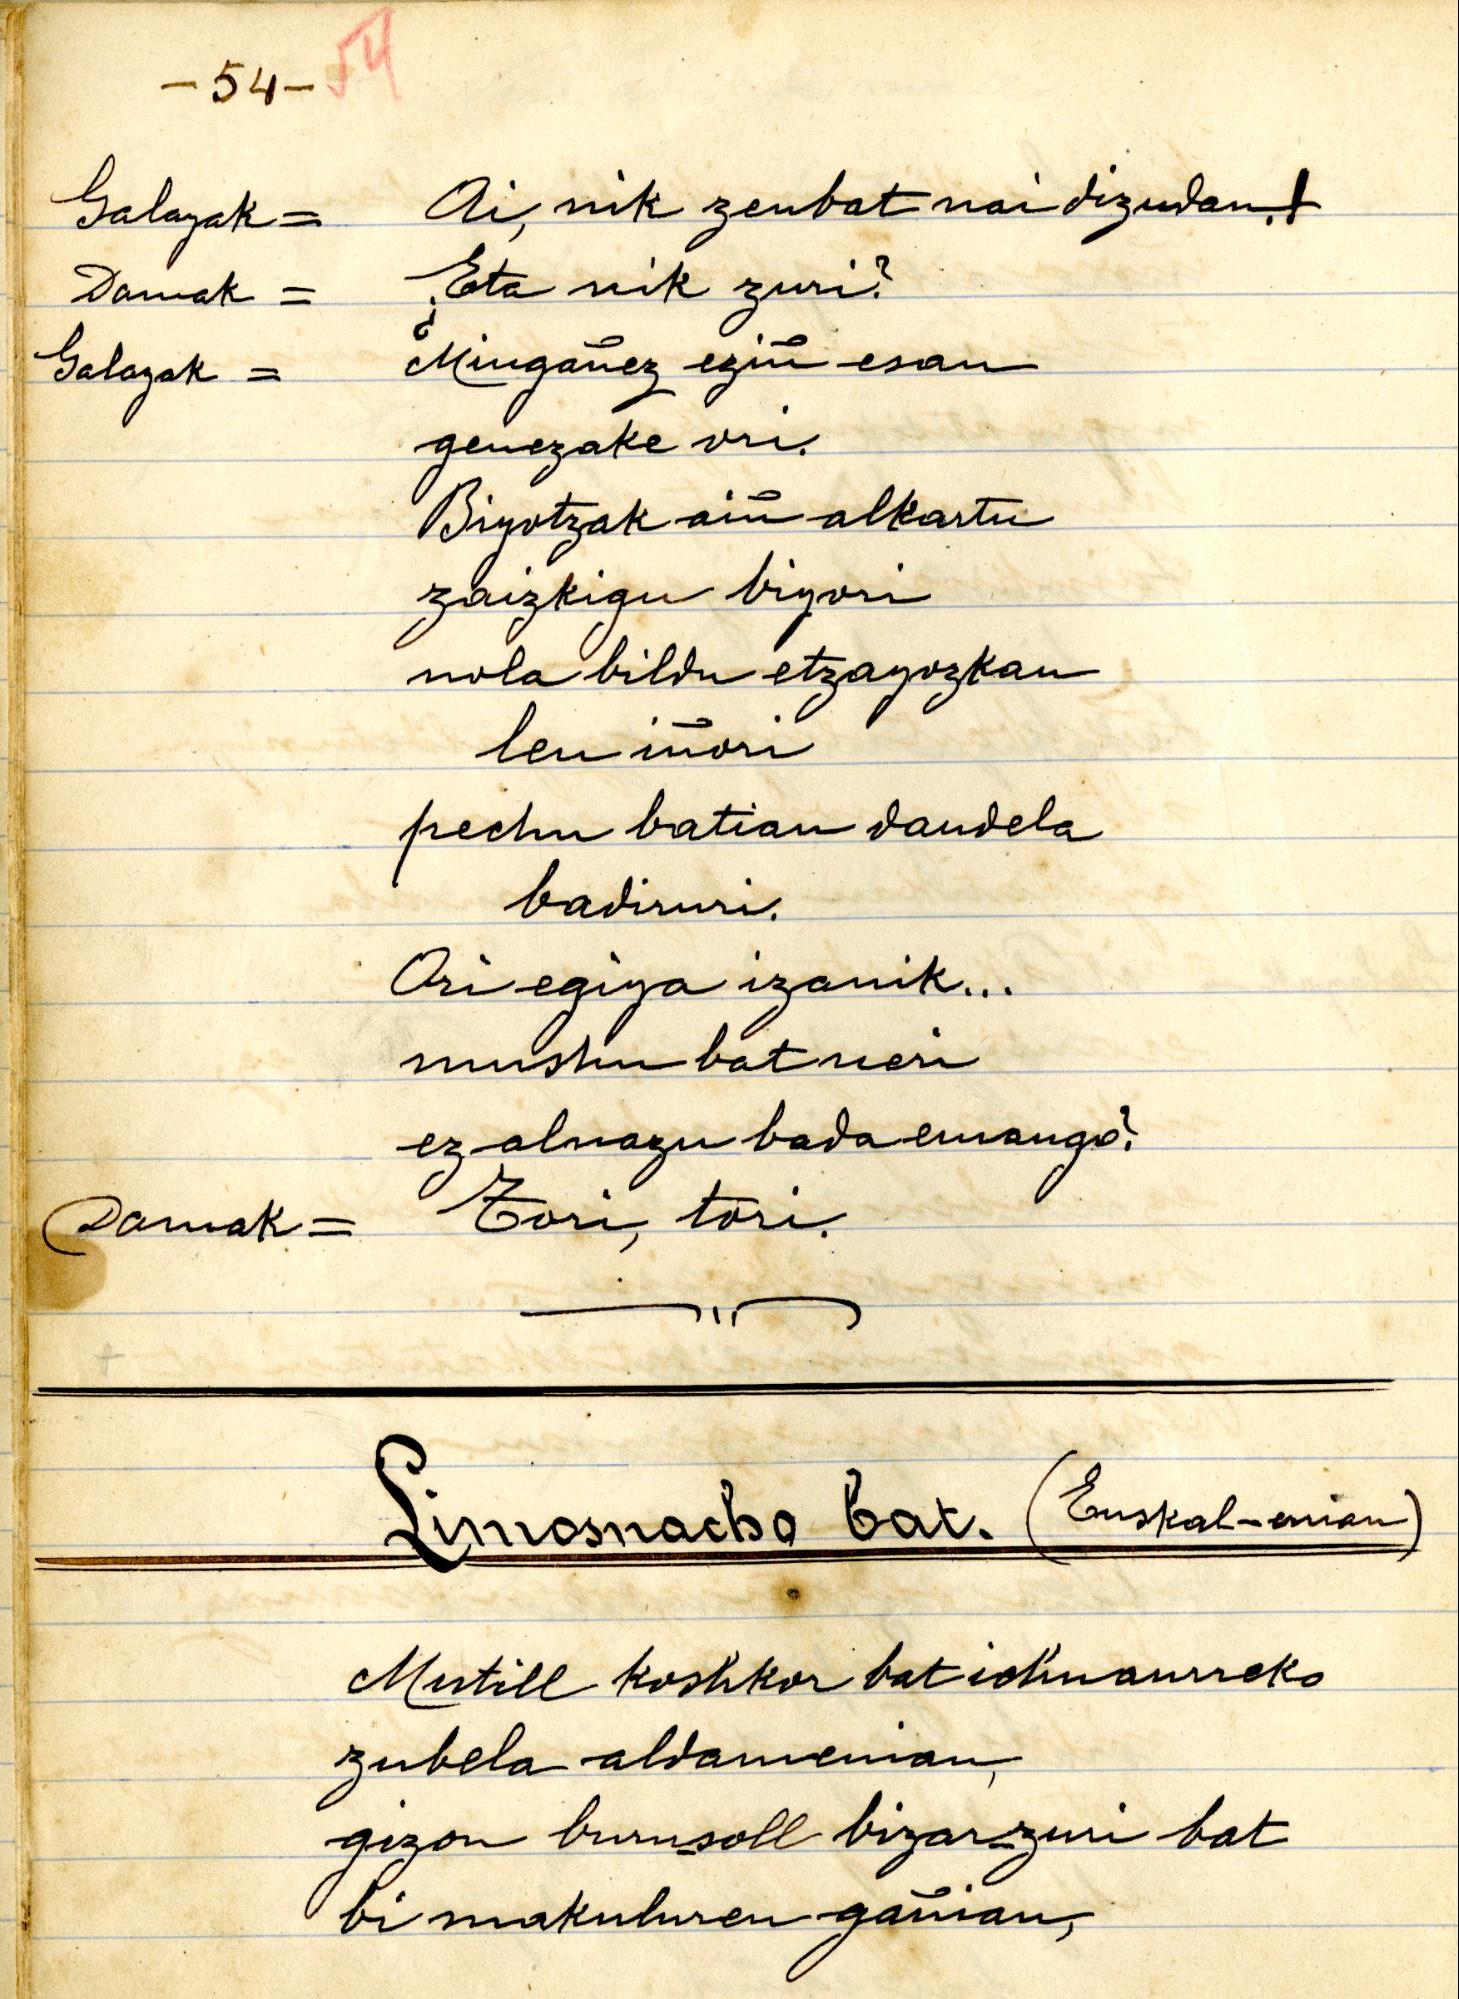 -54- 54
Galayak = Ai, nik zenbat nai dizudan.!
Damak = ¿Eta nik zuri?
Galayak = ¿Mingañez eziñ esan
genezake ori.
Biyotzak aiñ alkartu
zaizkigu biyori
nola bildu etzayozkan
len iñori
pechu batian daudela
badiruri.
Ori egiya izanik...
mushu bat neri
ez alnazu bada emango?
Damak = Tori, tori.
Limosnacho bat. (Euskal-errian)
Mutill koshkor bat ichuaurreko
zubela aldamenian,
gizon buru-soll bizar-zuri bat
bi makuluren gañian,